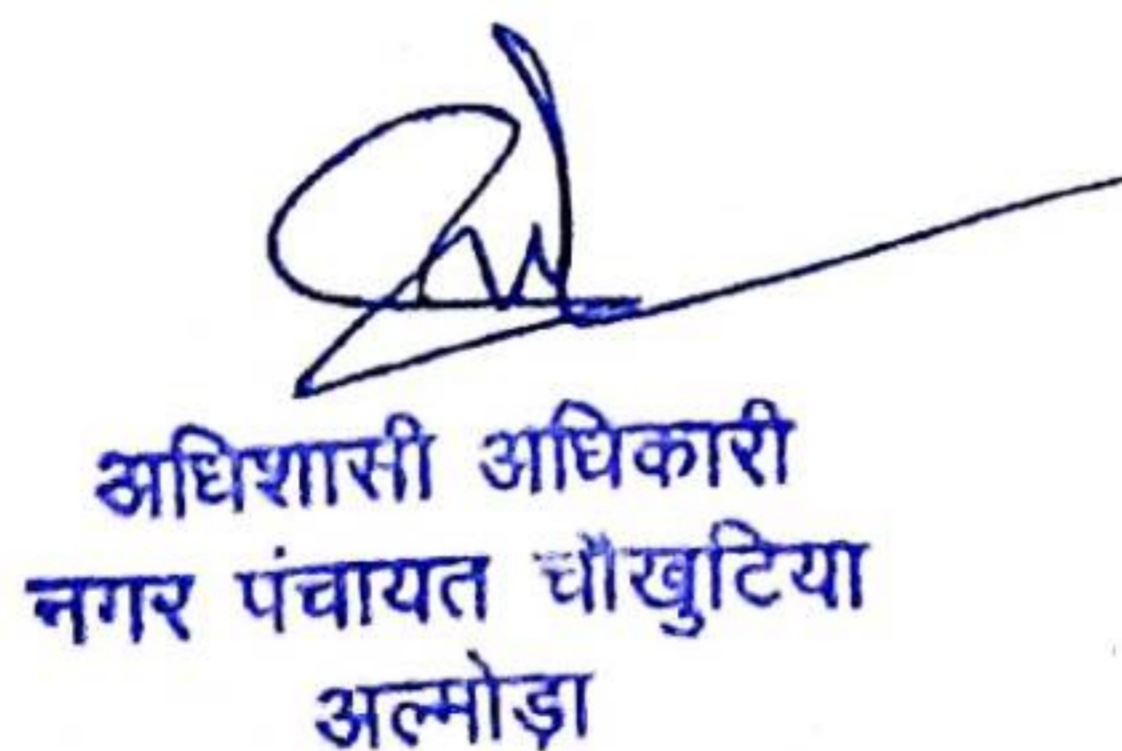 अधिशासी अधिकारी
नगर पंचायत चौखुटिया
अल्मोड़ा